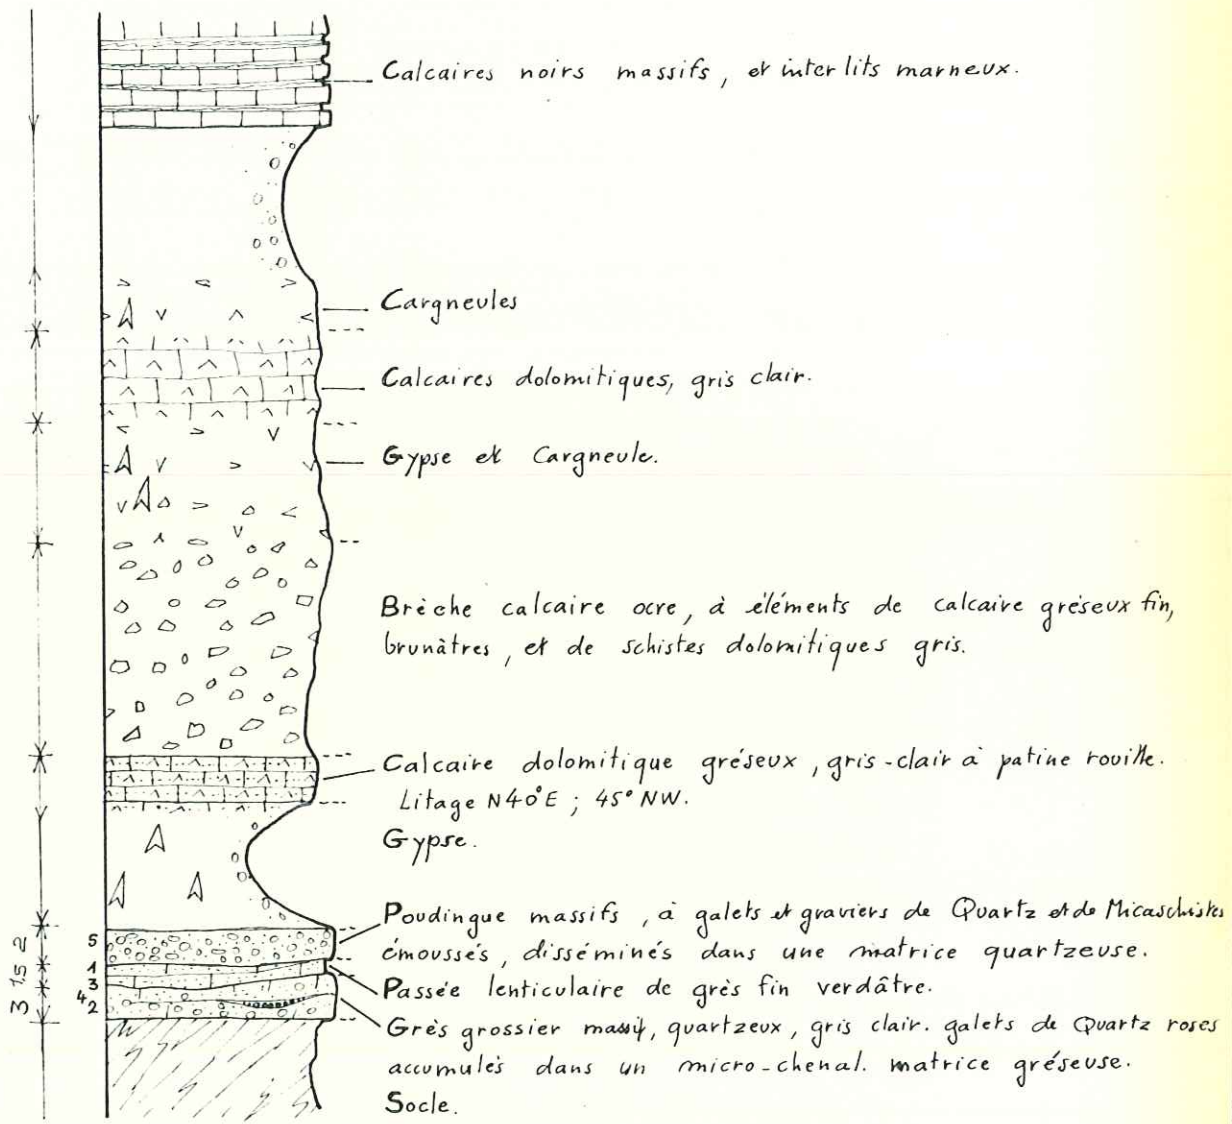 Calcaires noirs massifs, et inter lits marneux.
Cargneules
Calcaires dolomitiques, gris clair.
Gypse et Cargneule.
Brèche calcaire ocre, à éléments de calcaire gréseux fin,
brunâtres, et de schistes dolomitiques gris.
Calcaire dolomitique gréseux, gris-clair à patine rouille.
Litage N40°E ; 45° NW.
Gypse.
Poudingue massifs, à galets et graviers de Quartz et de Micaschistes
émoussés, disséminés dans une matrice quartzeuse.
Passée lenticulaire de grès fin verdâtre.
Grès grossier massif, quartzeux, gris clair. galets de Quartz roses
accumulés dans un micro-chenal. matrice gréseuse.
Socle.
2
1.5
3
5
1
3
4
2